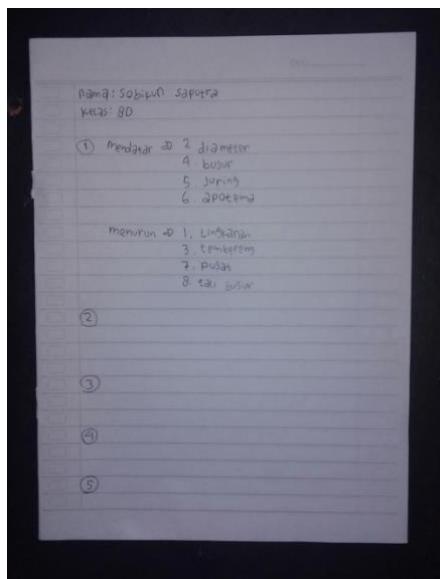 nama: Sobikun Saputra
Kelas: 8D
① Mendatar => 2. diameter
4. busur
5. juring
6. apotema
menurun => 1. Lingkaran
3. tembereng
7. pusat
8. tali busur
②
③
④
⑤